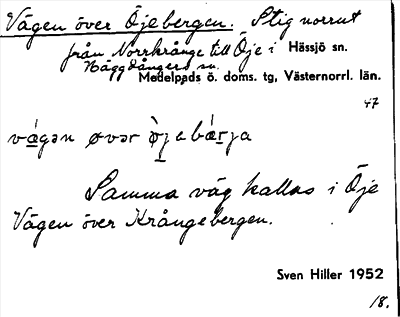 Vägen över Öjebergen. Stig norrut
från Norrkrånge till Öje i Hässjö sn.
Häggdångers sn.
Medelpads ö. doms. tg, Västernorrl. län.
47
vǻgən øvər ø̀jəbæ̀rja
Samma väg kallas i Öje
Vägen över Krångebergen.
Sven Hiller 1952
18.